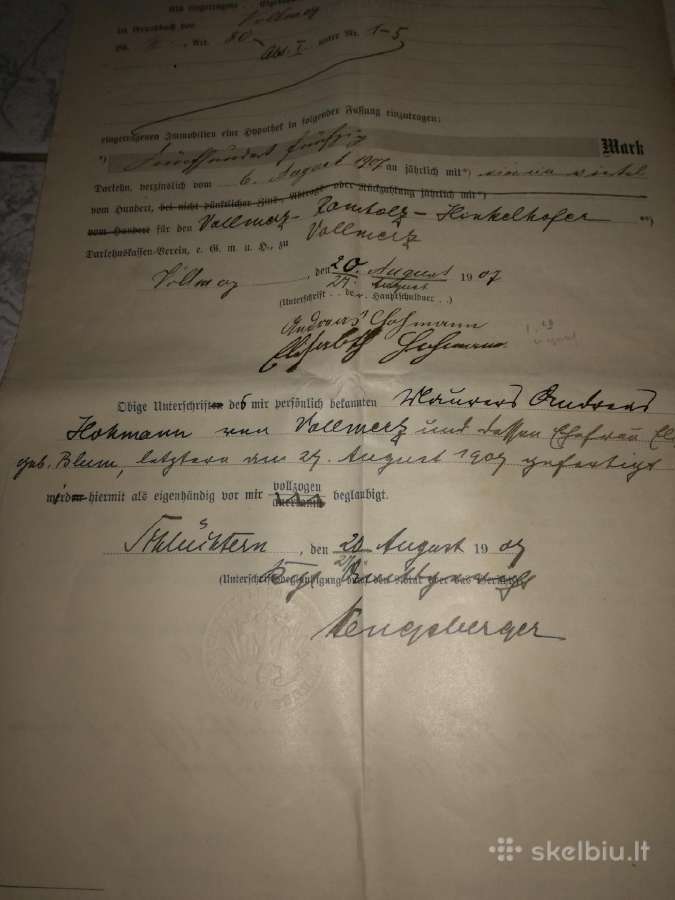 als eingetragene
im Grundbuch von Vollmerz
Bl. Art. 80 Abt. I unter Nr. 1-5
eingetragenen Immobilien eine Hypothek in folgender Fassung einzutragen:
*) Fünfhundert fünfzig Mark
Darlehn, verzinslich vom 6. August 1907 an jährlich mit*) viertel
vom Hundert, bei nicht pünktlicher Zins, Abtrags- oder Rückzahlung jährlich mit*)
vom Hundert für den Vollmerz-Ramholz-Hinkelhofer **)
Darlehnskassen-Verein, e. G. m. u. H., zu Vollmerz
Vollmerz, den 20. August 1907
27. August
(Unterschrift .. de .. Hauptschuldner ..)
Andreas Hohmann
Elisabeth Hohmann
Obige Unterschriften des mir persönlich bekannten Maurers Andreas
Hohmann von Vollmerz und dessen Ehefrau El
geb. Blum, letztern am 27. August 1907 gefertigt
werden hiermit als eigenhändig vor mir vollzogen beglaubigt.
anerkannt
Schlüchtern, den 20. August 1907
27.
(Unterschriftsbeglaubigung
Kgl.
Amtsgericht
skelbiu.lt